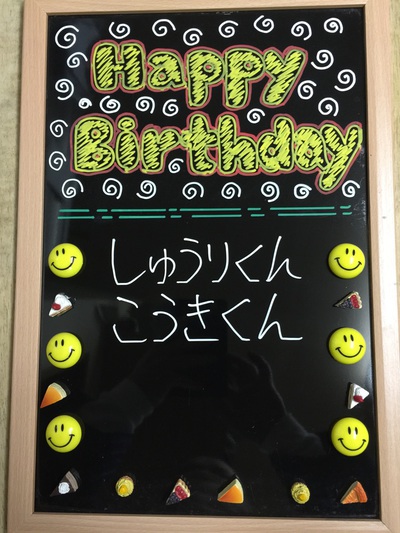 Happy
Birthday
しゅうりくん
こうきくん